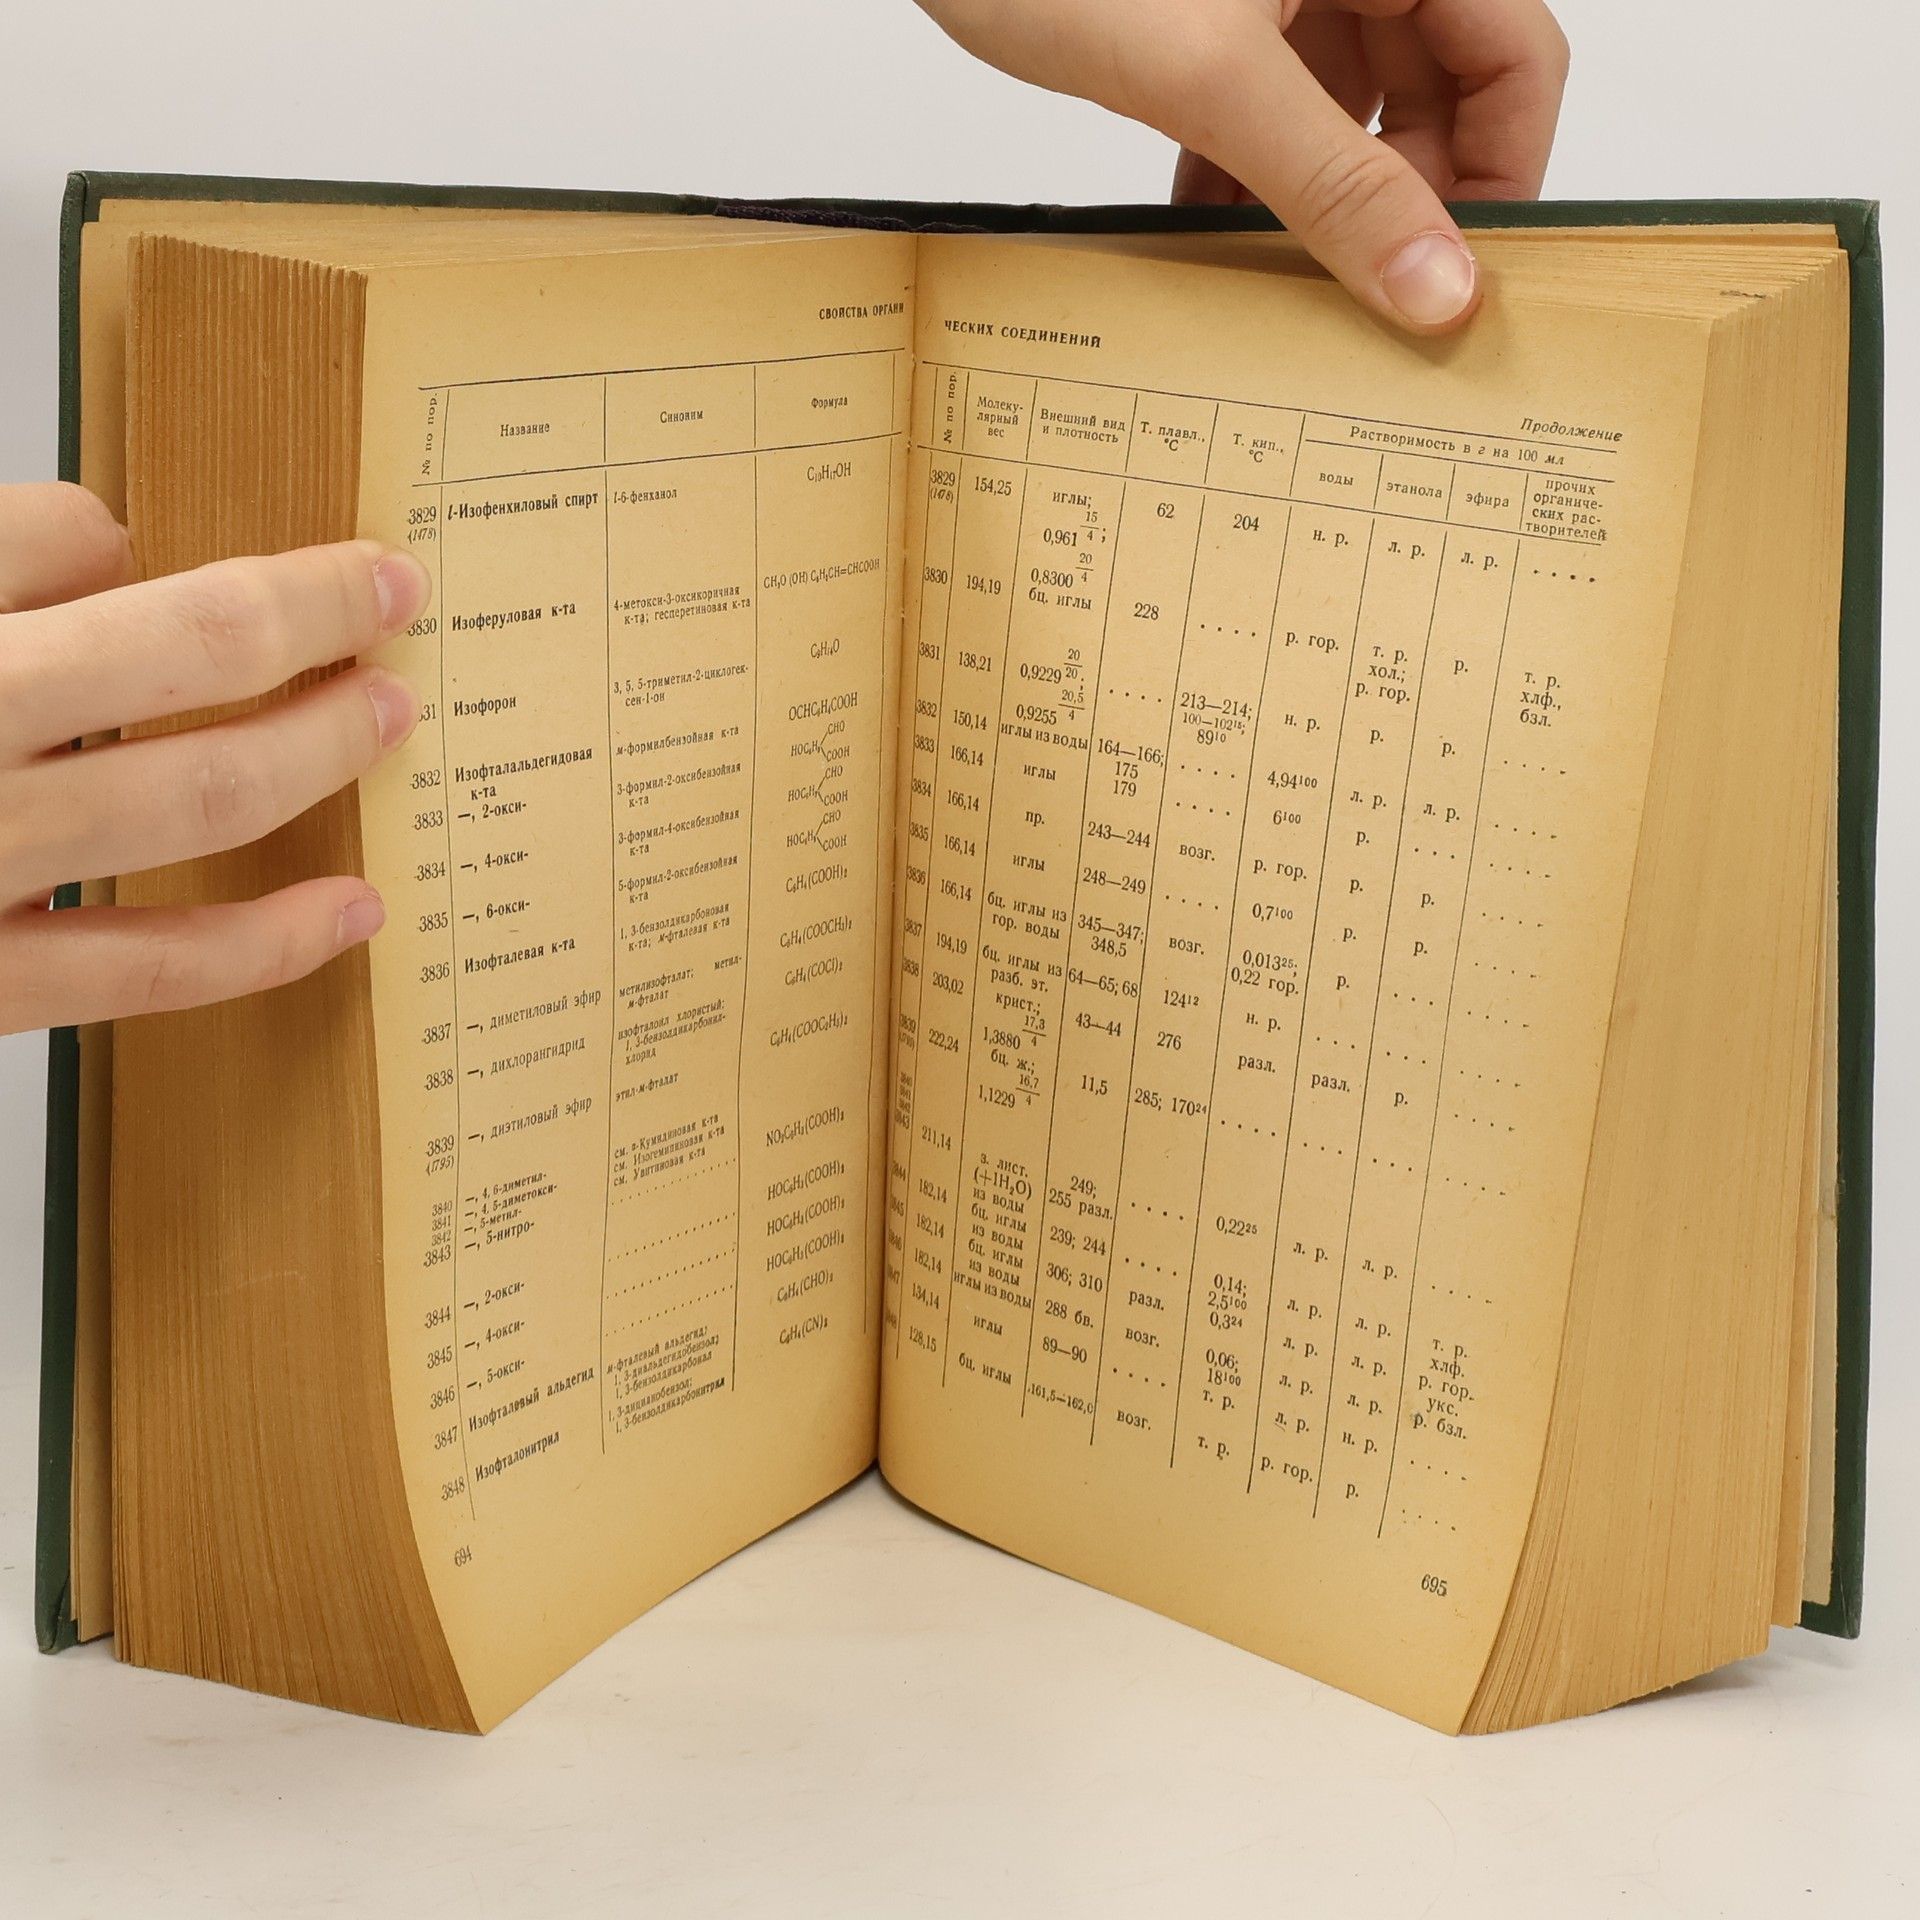 СВОЙСТВА ОРГАНИ
№ по пор.
Название
Синоним
Формула
3829 l-Изофенхиловый спирт l-6-фенханол C₁₀H₁₇OH
(1478)
3830 Изоферуловая к-та 4-метокси-3-оксикоричная CH₃O (OH) C₆H₃CH=CHCOOH
к-та; гесперетиновая к-та
31 Изофорон 3, 5, 5-триметил-2-циклогек- C₉H₁₄O
сен-1-он
3832 Изофталальдегидовая м-формилбензойная к-та OCHC₆H₄COOH
к-та
3833 —, 2-окси- 3-формил-2-оксибензойная HOC₆H₃ CHO
к-та COOH
3834 —, 4-окси- 3-формил-4-оксибензойная HOC₆H₃ CHO
к-та COOH
3835 —, 6-окси- 5-формил-2-оксибензойная HOC₆H₃ CHO
к-та COOH
3836 Изофталевая к-та 1, 3-бензолдикарбоновая C₆H₄(COOH)₂
к-та; м-фталевая к-та
3837 —, диметиловый эфир метилизофталат; метил- C₆H₄(COOCH₃)₂
м-фталат
3838 —, дихлорангидрид изофталоил хлористый; C₆H₄(COCl)₂
1, 3-бензолдикарбонил-
хлорид
3839 —, диэтиловый эфир этил-м-фталат C₆H₄(COOC₂H₅)₂
(1795)
3840 —, 4, 6-диметил- см. α-Кумидиновая к-та
3841 —, 4, 5-диметокси- см. Изогемипиновая к-та
3842 —, 5-метил- см. Увитиновая к-та
3843 —, 5-нитро- . . . . NO₂C₆H₃(COOH)₂
3844 —, 2-окси- . . . . HOC₆H₃(COOH)₂
3845 —, 4-окси- . . . . HOC₆H₃(COOH)₂
3846 —, 5-окси- . . . . HOC₆H₃(COOH)₂
3847 Изофталевый альдегид м-фталевый альдегид; C₆H₄(CHO)₂
1, 3-диальдегидобензол;
1, 3-бензолдикарбонал
3848 Изофталонитрил 1, 3-дицианобензол; C₆H₄(CN)₂
1, 3-бензолдикарбонитрил
694
ЧЕСКИХ СОЕДИНЕНИЙ
Продолжение
№ по пор.
Молеку-
лярный
вес
Внешний вид
и плотность
Т. плавл.,
°C
Т. кип.,
°C
Растворимость в г на 100 мл
воды
этанола
эфира
прочих
органиче-
ских рас-
творителей
3829 154,25 иглы; 62 204 н. р. л. р. л. р. . . . .
(1478) 0,961 15/4;
0,8300 20/4
3830 194,19 бц. иглы 228 . . . . р. гор. т. р. р. т. р.
хол.; хлф.,
р. гор. бзл.
3831 138,21 0,9229 20/20; . . . . 213—214; н. р. р. р. . . . .
0,9255 20,5/4 100—102¹⁵;
89¹⁰
3832 150,14 иглы из воды 164—166; . . . . 4,94¹⁰⁰ л. р. л. р. . . . .
175
3833 166,14 иглы 179 . . . . 6¹⁰⁰ р. . . . . . . .
3834 166,14 пр. 243—244 возг. р. гор. р. р. . . . .
3835 166,14 иглы 248—249 . . . . 0,7¹⁰⁰ р. р. . . . .
3836 166,14 бц. иглы из 345—347; возг. 0,013²⁵; р. . . . . . . .
гор. воды 348,5 0,22 гор.
3837 194,19 бц. иглы из 64—65; 68 124¹² н. р. . . . . . . . . . . .
разб. эт.
3838 203,02 крист.; 43—44 276 разл. разл. р. . . . .
1,3880 17,3/4
3839 222,24 бц. ж.; 11,5 285; 170²⁴ . . . . . . . . . . . . . . . .
1,1229 16,7/4
3840
3841
3842
3843 211,14 з. лист. 249; . . . . 0,22²⁵ л. р. л. р. . . . .
(+1H₂O) 255 разл.
из воды
3844 182,14 бц. иглы 239; 244 . . . . 0,14; л. р. л. р. т. р.
из воды 2,5¹⁰⁰ хлф.
3845 182,14 бц. иглы 306; 310 разл. 0,3²⁴ л. р. л. р. р. гор.
из воды укс.
3846 182,14 иглы из воды 288 бв. возг. 0,06; л. р. л. р. р. бзл.
18¹⁰⁰
3847 134,14 иглы 89—90 . . . . т. р. л. р. н. р. . . . .
3848 128,15 бц. иглы 161,5—162,0 возг. т. р. р. гор. р. . . . .
695